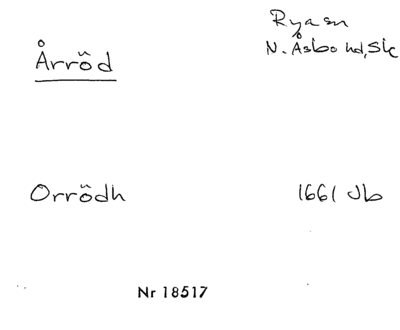 Årröd
Rya sn
N. Åsbo hd, Sk
Orrödh
1661 Jb
Nr 18517